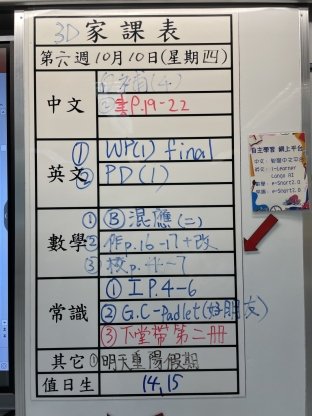 3D 家課表
第六週10月10日(星期四)
中文
② 書P.19-22
英文
① WP(1) final
② PD(1)
數學
① Ⓑ 混應(二)
② 作p.16-17+改
③ 校p.4-7
常識
① 工P.4-6
② G.C-Padlet(好朋友)
③ 下堂帶第二冊
其它 ① 明天重陽假期
值日生 14,15
自主學習 網上平台